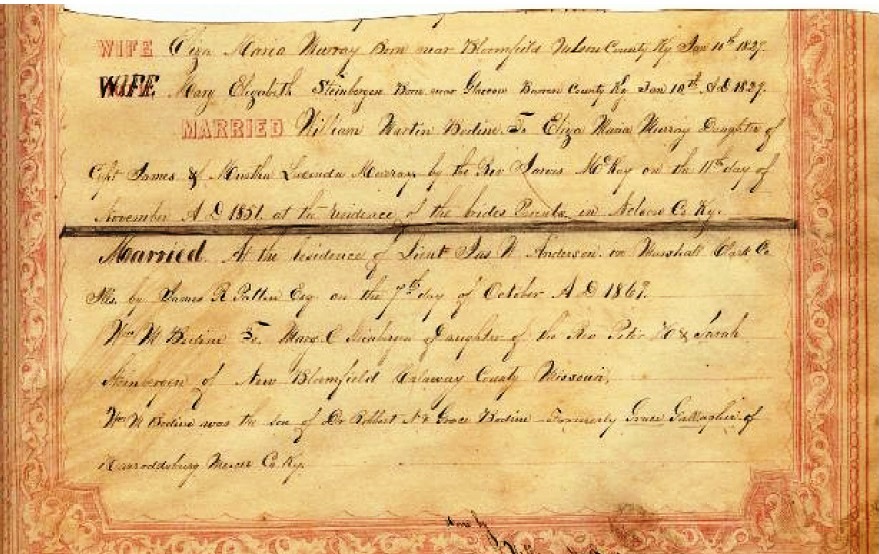 WIFE Eliza Maria Murray Born near Bloomfield Nelson County Ky Jan 10th 1827.
WIFE Mary Elizabeth Steinbergen Born near Glascow Barren County Ky Jan 10th A.D 1829.
MARRIED William Martin Bodine To Eliza Maria Murray Daughter of
Capt James & Lucinda Murray by the Rev McKay on the 11th day of
November A D 1851. at the residence of the brides Parents in Nelson Co Ky.
Married. At the residence of Lieut Jas W Anderson. in Marshall Clark Co
Ills. by James R Patten Esq on the 7th day of October A D 1869.
Wm M Bodine To. Mary E Steinbergen Daughter of the Rev Peter H & Sarah
Steinbergen of New Bloomfield Calaway County Missouri,
Wm M Bodine was the son of Dr Robbert & Grace Bodine Formerly Grace Gallagher of
Harroddsburg Mercer Co. Ky.